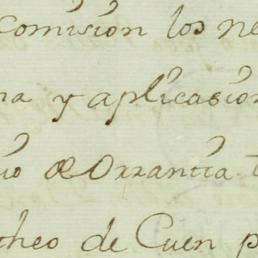 comisión los ne
na y aplicasión
io de Orrantia t
theo de Cuen p